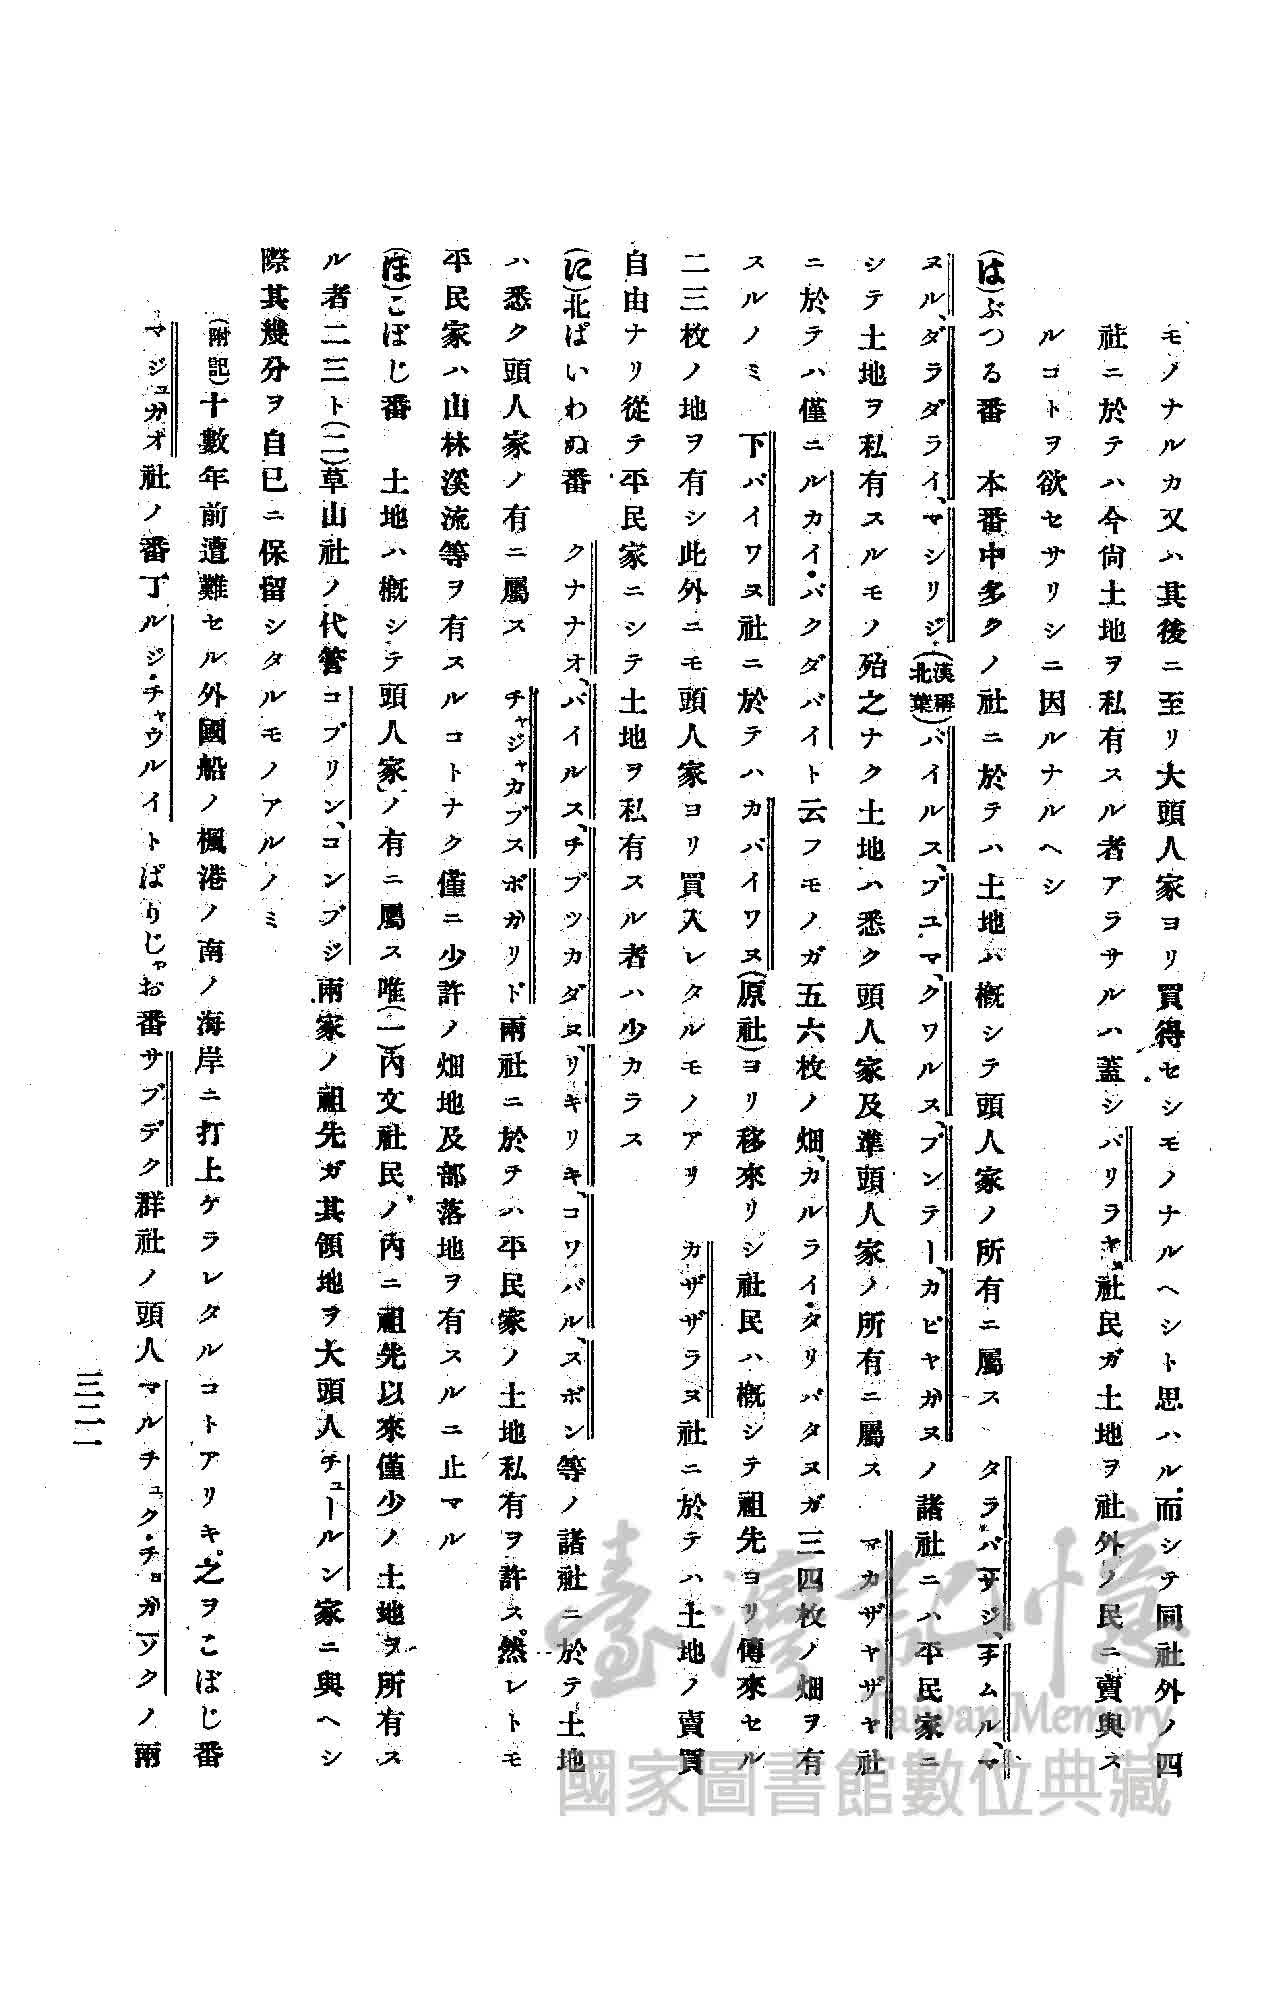 モノナルカ又ハ其後ニ至リ大頭人家ヨリ買得セシモノナルヘシト思ハル。而シテ同社外ノ四
社ニ於テハ今尙土地ヲ私有スル者アラサルハ蓋シバリラヤ社民ガ土地ヲ社外ノ民ニ賣與ス
ルコトヲ欲セサリシニ因ルナルヘシ
(は)ぶつる番　本番中多クノ社ニ於テハ土地ハ槪シテ頭人家ノ所有ニ屬ス　タラバサジ、チムル、マ
ヌル、ダラダライ、マシリジ、(漢稱北葉)パイルス、ブユマ、クワルス、ブンテー、カピヤガヌノ諸社ニハ平民家ニ
シテ土地ヲ私有スルモノ殆之ナク土地ハ悉ク頭人家及準頭人家ノ所有ニ屬ス　マカザヤザヤ社
ニ於テハ僅ニルカイ・バクダバイト云フモノガ五六枚ノ畑、カルライ・タリバタヌガ三四枚ノ畑ヲ有
スルノミ　下パイワヌ社ニ於テハカパイワヌ(原社)ヨリ移來リシ社民ハ槪シテ祖先ヨリ傳來セル
二三枚ノ地ヲ有シ此外ニモ頭人家ヨリ買入レタルモノアリ　カザザラヌ社ニ於テハ土地ノ賣買
自由ナリ從テ平民家ニシテ土地ヲ私有スル者ハ少カラス
(に)北ぱいわぬ番　クナナオ、パイルス、チブッカダヌ、リキリキ、コワバル、スボン等ノ諸社ニ於テ土地
ハ悉ク頭人家ノ有ニ屬ス　チャジャカブスボガリド兩社ニ於テハ平民家ノ土地私有ヲ許ス。然レトモ
平民家ハ山林溪流等ヲ有スルコトナク僅ニ少許ノ畑地及部落地ヲ有スルニ止マル
(ほ)こぼじ番　土地ハ槪シテ頭人家ノ有ニ屬ス唯(一)內文社民ノ內ニ祖先以來僅少ノ土地ヲ所有ス
ル者二三ト(二)草山社ノ代管コブリン、コンブジ兩家ノ祖先ガ其領地ヲ大頭人チュールン家ニ與ヘシ
際其幾分ヲ自己ニ保留シタルモノアルノミ
(附記)十數年前遭難セル外國船ノ楓港ノ南ノ海岸ニ打上ケラレタルコトアリキ。之ヲこぼじ番
マジュガオ社ノ番丁ルジ・チャウルイトぱりじゃお番サブデク群社ノ頭人マルチュク・チョガソクノ兩
三二一
臺灣記憶
Taiwan Memory
國家圖書館數位典藏